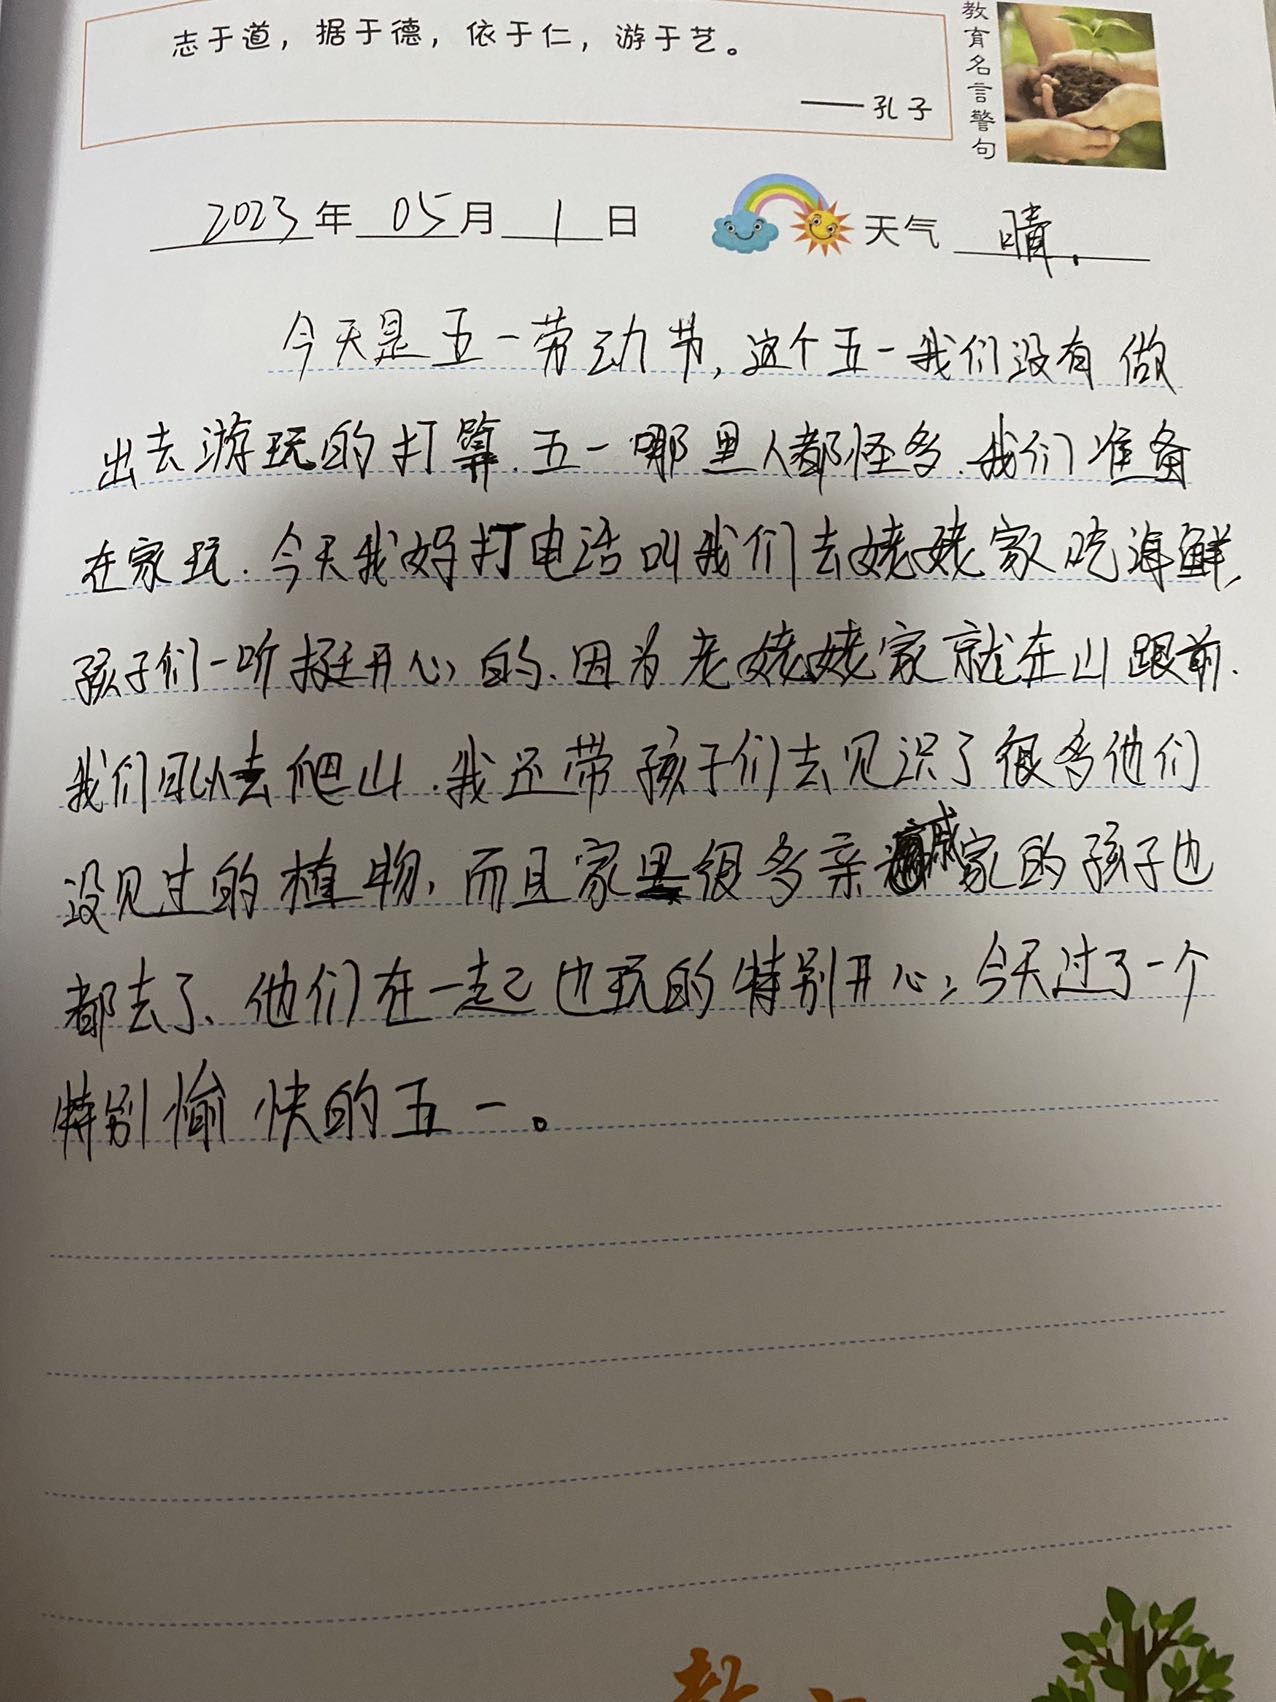 志于道，据于德，依于仁，游于艺。
——孔子
教育名言警句
2023年05月1日 天气 晴.
今天是五一劳动节,这个五一我们没有做
出去游玩的打算.五一哪里人都怪多.我们准备
在家玩.今天我妈打电话叫我们去姥姥家吃海鲜,
孩子们一听挺开心的.因为老姥姥家就在山跟前.
我们可以去爬山.我还带孩子们去见识了很多他们
没见过的植物,而且家里很多亲戚家的孩子也
都去了、他们在一起也玩的特别开心,今天过了一个
特别愉快的五一。